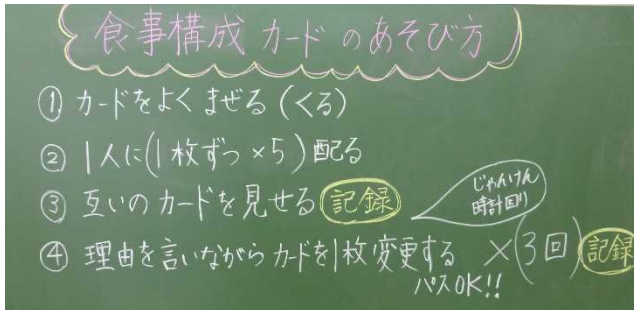 食事構成 カードのあそび方
① カードをよくまぜる(くる)
② 1人に(1枚ずつ×5)配る
③ 互いのカードを見せる 記録
じゃんけん
時計回り
④ 理由を言いながらカードを1枚変更する ×(3回) 記録
パスOK!!